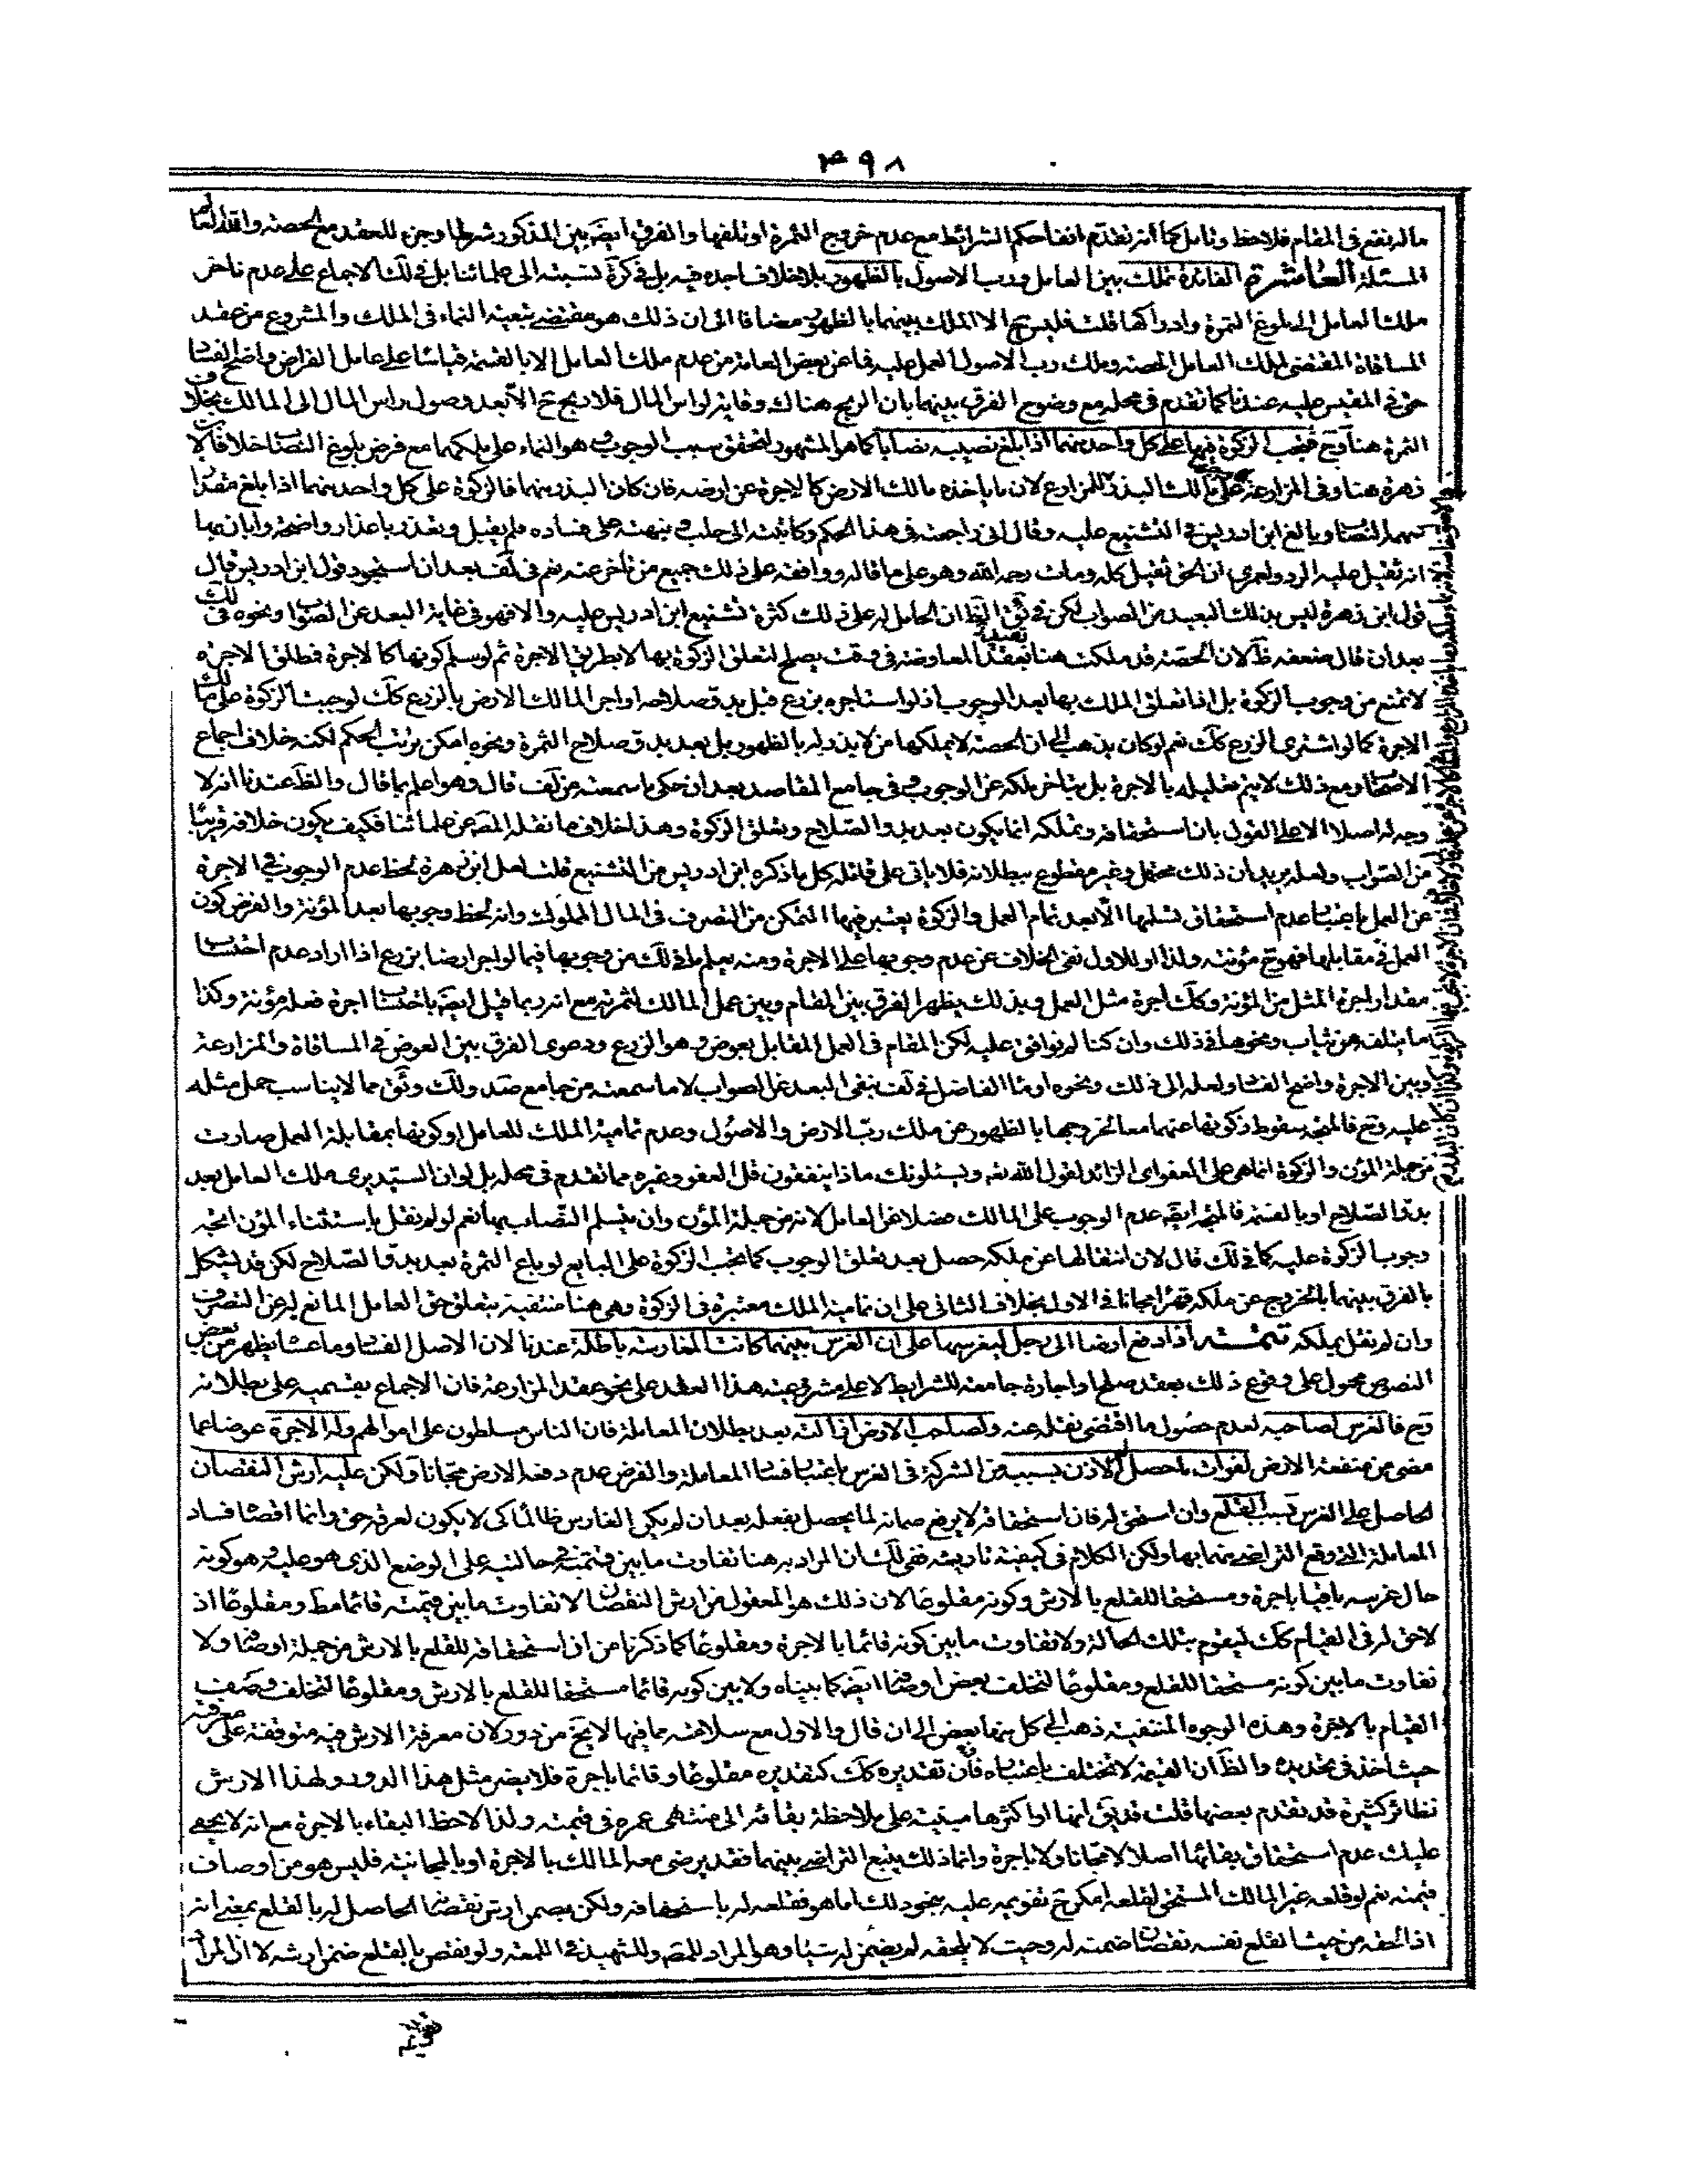 ٤٩٨
ماله نفع فى المقام فلاحظ وتامل كما انه تقدم انفا حكم الشرائط مع عدم خروج الثمرة او تلفها والفرق ايضا بين المذكور شرطا وجزء للعقد مع الحصة والله العالم
المسئلة العاشرة الفائدة تملك بين العامل ورب الاصول بالظهور بلا خلاف اجده فيه بل فى كرة نسبته الى علمائنا بل فى لك الاجماع على عدم تاخر
ملك العامل الى بلوغ الثمرة وادراكها قلت فليس ح الا الملك بينهما بالظهور مضافا الى ان ذلك هو مقتضى تبعية النماء فى الملك والمشروع من عقد
المساقاة المقتضى لملك العامل الحصة وملك رب الاصول العمل عليه فما عن بعض العامة من عدم ملك العامل الا بالقسمة قياسا على عامل القراض واضح الفساد
حتى فى المقيس عليه عندنا كما تقدم فى محله مع وضوح الفرق بينهما بان الربح هناك وقاية لراس المال فلا ربح ح الا بعد وصول راس المال الى المالك بخلاف
الثمرة هنا وح فتجب الزكوة فيها على كل واحد منهما اذا بلغ نصيبه نصابا كما هو المشهور لتحقق سبب الوجوب وهو النماء على ملكهما مع فرض بلوغ النصاب خلافا لابن
زهرة هنا وفى المزارعة على مالك البذر للمزارع لان ما ياخذه مالك الارض كالاجرة عن ارضه فان كان البذر منهما فالزكوة على كل واحد منهما اذا بلغ مقدار
سهمه النصاب وبالغ ابن ادريس فى التشنيع عليه وقال انى راجعته فى هذا الحكم وكاتبته الى حلب ونبهته على فساده فلم يقبل وتعذر باعذار واضحة وابان بها
انه ثقيل عليه الرد ولعمرى ان الحق ثقيل كله ومات رحمه الله وهو على ما قاله ووافقه على ذلك جميع من تاخر عنه نعم فى لف بعد ان استجود قول ابن ادريس قال
قول ابن زهرة ليس بذلك البعيد من الصواب لكن فى ثق الظ ان الحامل له على ذلك كثرة تشنيع ابن ادريس عليه والا فهو فى غاية البعد عن الصواب ونحوه فى لك
بعد ان قال ضعفه ظ لان الحصة قد ملكت هنا بعقد المعاوضة فى وقت يصلح لتعلق الزكوة بها لا بطريق الاجرة ثم لو سلم كونها كالاجرة فمطلق الاجرة
لا تمنع من وجوب الزكوة بل اذا تعلق الملك بها بعد الوجوب اذ لو استاجره بزرع قبل بدو صلاحه او اجر المالك الارض بالزرع كك لوجبت الزكوة على مالك
الاجرة كما لو اشترى الزرع كك نعم لو كان يذهب الى ان الحصة لا يملكها من لا بذر له بالظهور بل بعد بدو صلاح الثمرة ونحوه امكن ترتب الحكم لكنه خلاف اجماع
الاصحاب ومع ذلك لا يتم تعليله بالاجرة بل بتاخر ملكه عن الوجوب وفى جامع المقاصد بعد ان حكى ما سمعته من لف قال وهو اعلم بما قال والظ عندنا انه لا
وجه له اصلا الا على القول بان استحقاقه وتملكه انما يكون بعد بدو الصلاح وتعلق الزكوة وهذا خلاف ما نقله المص عن علمائنا فكيف يكون خلافه قريبا
من الصواب ولعله يريد ان ذلك محتمل وغير مقطوع ببطلانه فلا ياتى على قائله كل ما ذكره ابن ادريس من التشنيع قلت لعل ابن زهرة لحظ عدم الوجوب فى الاجرة
عن العمل باعتبار عدم استحقاق تسلمها الا بعد تمام العمل والزكوة يعتبر فيها التمكن من التصرف فى المال المملوك وانه لحظ وجوبها بعد المؤنة والفرض كون
العمل فى مقابلها فهو ح مؤنته ولذا او للاول نفى الخلاف عن عدم وجوبها على الاجرة ومنه يعلم ما فى لك من وجوبها فيما لو اجر ارضا بزرع اذا اراد عدم احتساب
مقدار اجرة المثل من المؤنة وكك اجرة مثل العمل وبذلك يظهر الفرق بين المقام وبين عمل المالك لثمرته مع انه ربما قيل ايضا باحتساب اجرة فعله مؤنة وكذا
ما يتلف من ثياب ونحوها فى ذلك وان كنا لم نوافق عليه لكن المقام فى العمل المقابل بعوض وهو الزرع ودعوى الفرق بين العوض فى المساقاة والمزارعة
وبين الاجرة واضح الفساد ولعله الى ذلك ونحوه اوما الفاضل فى لف بنفى البعد عن الصواب لا ما سمعته من جامع صد ولك وثق مما لا يناسب حمل مثله
عليه وح فالمتجه سقوط زكوتها عنهما معا لخروجها بالظهور عن ملك رب الارض والاصول وعدم تمامية الملك للعامل او كونها بمقابلة العمل صارت
من جملة المؤن والزكوة انما هى على العفو اى الزائد لقول الله تعه ويسئلونك ماذا ينفقون قل العفو وغيره مما تقدم فى محله بل لو ان السيد يرى ملك العامل بعد
بدو الصلاح او بالقسمة فالمتجه ايضا عدم الوجوب على المالك فضلا عن العامل لانه من جملة المؤن وان لم يسلم النصاب بها نعم لو لم نقل باستثناء المؤن اتجه
وجوب الزكوة عليه كما فى لك قال لان انتقالها عن ملكه حصل بعد تعلق الوجوب كما تجب الزكوة على البايع لو باع الثمرة بعد بدو الصلاح لكن قد يشكل
بالفرق بينهما بالخروج عن ملكه قهرا مجانا فى الاول بخلاف الثانى على ان تمامية الملك معتبرة فى الزكوة وهى هنا منتفية بتعلق حق العامل المانع له عن التصرف
وان لم نقل بملكه تتمة اذا دفع ارضا الى رجل ليغرسها على ان الغرس بينهما كانت المغارسة باطلة عندنا لان الاصل الفساد وما عساه يظهر من بعض
النصوص محمول على وقوع ذلك بعقد صلح او اجارة جامعة للشرايط لا على مشروعية هذا العقد على نحو عقد المزارعة فان الاجماع بقسميه على بطلانه
وح فالغرس لصاحبه لعدم حصول ما اقتضى نقله عنه ولصاحب الارض ازالته بعد بطلان المعاملة فان الناس مسلطون على اموالهم وله الاجرة عوضا عما
مضى من منفعة الارض لفوات ما حصل الاذن بسببه من الشركة فى الغرس باعتبار فساد المعاملة والفرض عدم دفعه الارض مجانا ولكن عليه ارش النقصان
الحاصل على الغرس بسبب القلع وان استحق له فان استحقاقه لا يرفع ضمانه لما يحصل بفعله بعد ان لم يكن الغارس ظالما كى لا يكون لعرقه حق وانما اقصاه فساد
المعاملة التى وقع التراضى منهما بها ولكن الكلام فى كيفية تاديته ففى لك ان المراد به هنا تفاوت ما بين قيمته فى حالتيه على الوضع الذى هو عليه وهو كونه
حال غرسه باقيا باجرة ومستحقا للقلع بالارش وكونه مقلوعا لان ذلك هو المعقول من ارش النقصان لا تفاوت ما بين قيمته قائما مط ومقلوعا اذ
لا حق له فى القيام كك ليقوم بتلك الحالة ولا تفاوت ما بين كونه قائما بالاجرة ومقلوعا كما ذكرنا من ان استحقاقه للقلع بالارش من جملة اوصافه ولا
تفاوت ما بين كونه مستحقا للقلع ومقلوعا لتخلف بعض اوصافه ايضا كما بيناه ولا بين كونه قائما مستحقا للقلع بالارش ومقلوعا لتخلف وصف
القيام بالاجرة وهذه الوجوه المنتفية ذهب الى كل منها بعض الى ان قال والاول مع سلامته مما فيها لا يخ من دور لان معرفة الارش فيه متوقفة على معرفته
حيث اخذ فى تحديده والظ ان القيمة لا تختلف باعتباره وان تقديره كك كتقديره مقلوعا وقائما باجرة فلا يضر مثل هذا الدور ولهذا الارش
نظائر كثيرة قد تقدم بعضها قلت قد يق انها او اكثرها مبنية على ملاحظة بقائه الى منتهى عمره فى قيمته ولذا لاحظ البقاء بالاجرة مع انه لا يخفى
عليك عدم استحقاق بقائها اصلا لا مجانا ولا باجرة وانما ذلك يتبع التراضى بينهما فقد يرضى معه المالك بالاجرة او بالمجانية فليس هو من اوصاف
قيمته نعم لو قلعه غير المالك المستحق لقلعه امكن ح تقويمه عليه بنحو ذلك اما هو فقلعه له باستحقاقه ولكن يضمن ارش نقصانه الحاصل له بالقلع بمعنى انه
اذا لحقه من حيث القلع نفسه نقصان ضمنه له وحيث لا يلحقه لم يضمن له شيئا وهو المراد للمص وللشهيد فى اللمعة ولو نقص بالقلع ضمن ارشه لا ان المراد